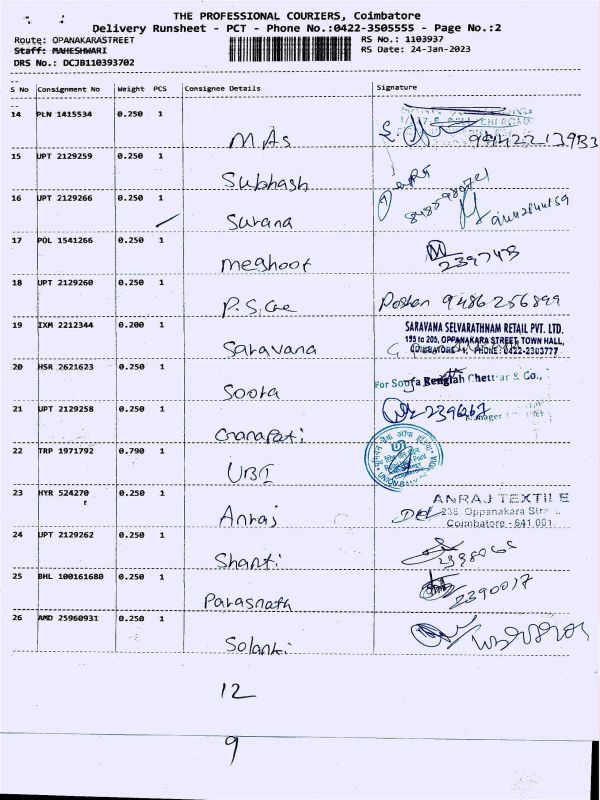 THE PROFESSIONAL COURIERS, Coimbatore
Delivery Runsheet - PCT - Phone No.:0422-3505555 - Page No.:2
Route: OPANAKARASTREET
RS No.: 1103937
Staff: MAHESHWARI
RS Date: 24-Jan-2023
DRS No.: DCJB110393702
S No Consignment No Weight PCS Consignee Details Signature
14 PLN 1415534 0.250 1 M.As
15 UPT 2129259 0.250 1 Subhash
16 UPT 2129266 0.250 1 Surana
17 POL 1541266 0.250 1 Meghoot 2397473
18 UPT 2129260 0.250 1 P.S. Posten 9486256899
19 IXM 2212344 0.200 1 Saravana
SARAVANA SELVARATHNAM RETAIL PVT. LTD.
195 to 205, OPPANAKARA STREET, TOWN HALL,
COIMBATORE - 1, PHONE: 0422-2303777
20 HSR 2621623 0.250 1 Soora For Soora Rengiah Chettiar & Co.,
21 UPT 2129258 0.250 1 Ganapati 2396267
Manager
22 TRP 1971792 0.790 1 UBI
23 HYR 524270 0.250 1 Anraj
ANRAJ TEXTILE
236, Oppanakara Stre
Coimbatore - 641 001.
24 UPT 2129262 0.250 1 Shanti
25 BHL 100161680 0.250 1 Parasnath 2390017
26 AMD 25960931 0.250 1 Solanki
12
9